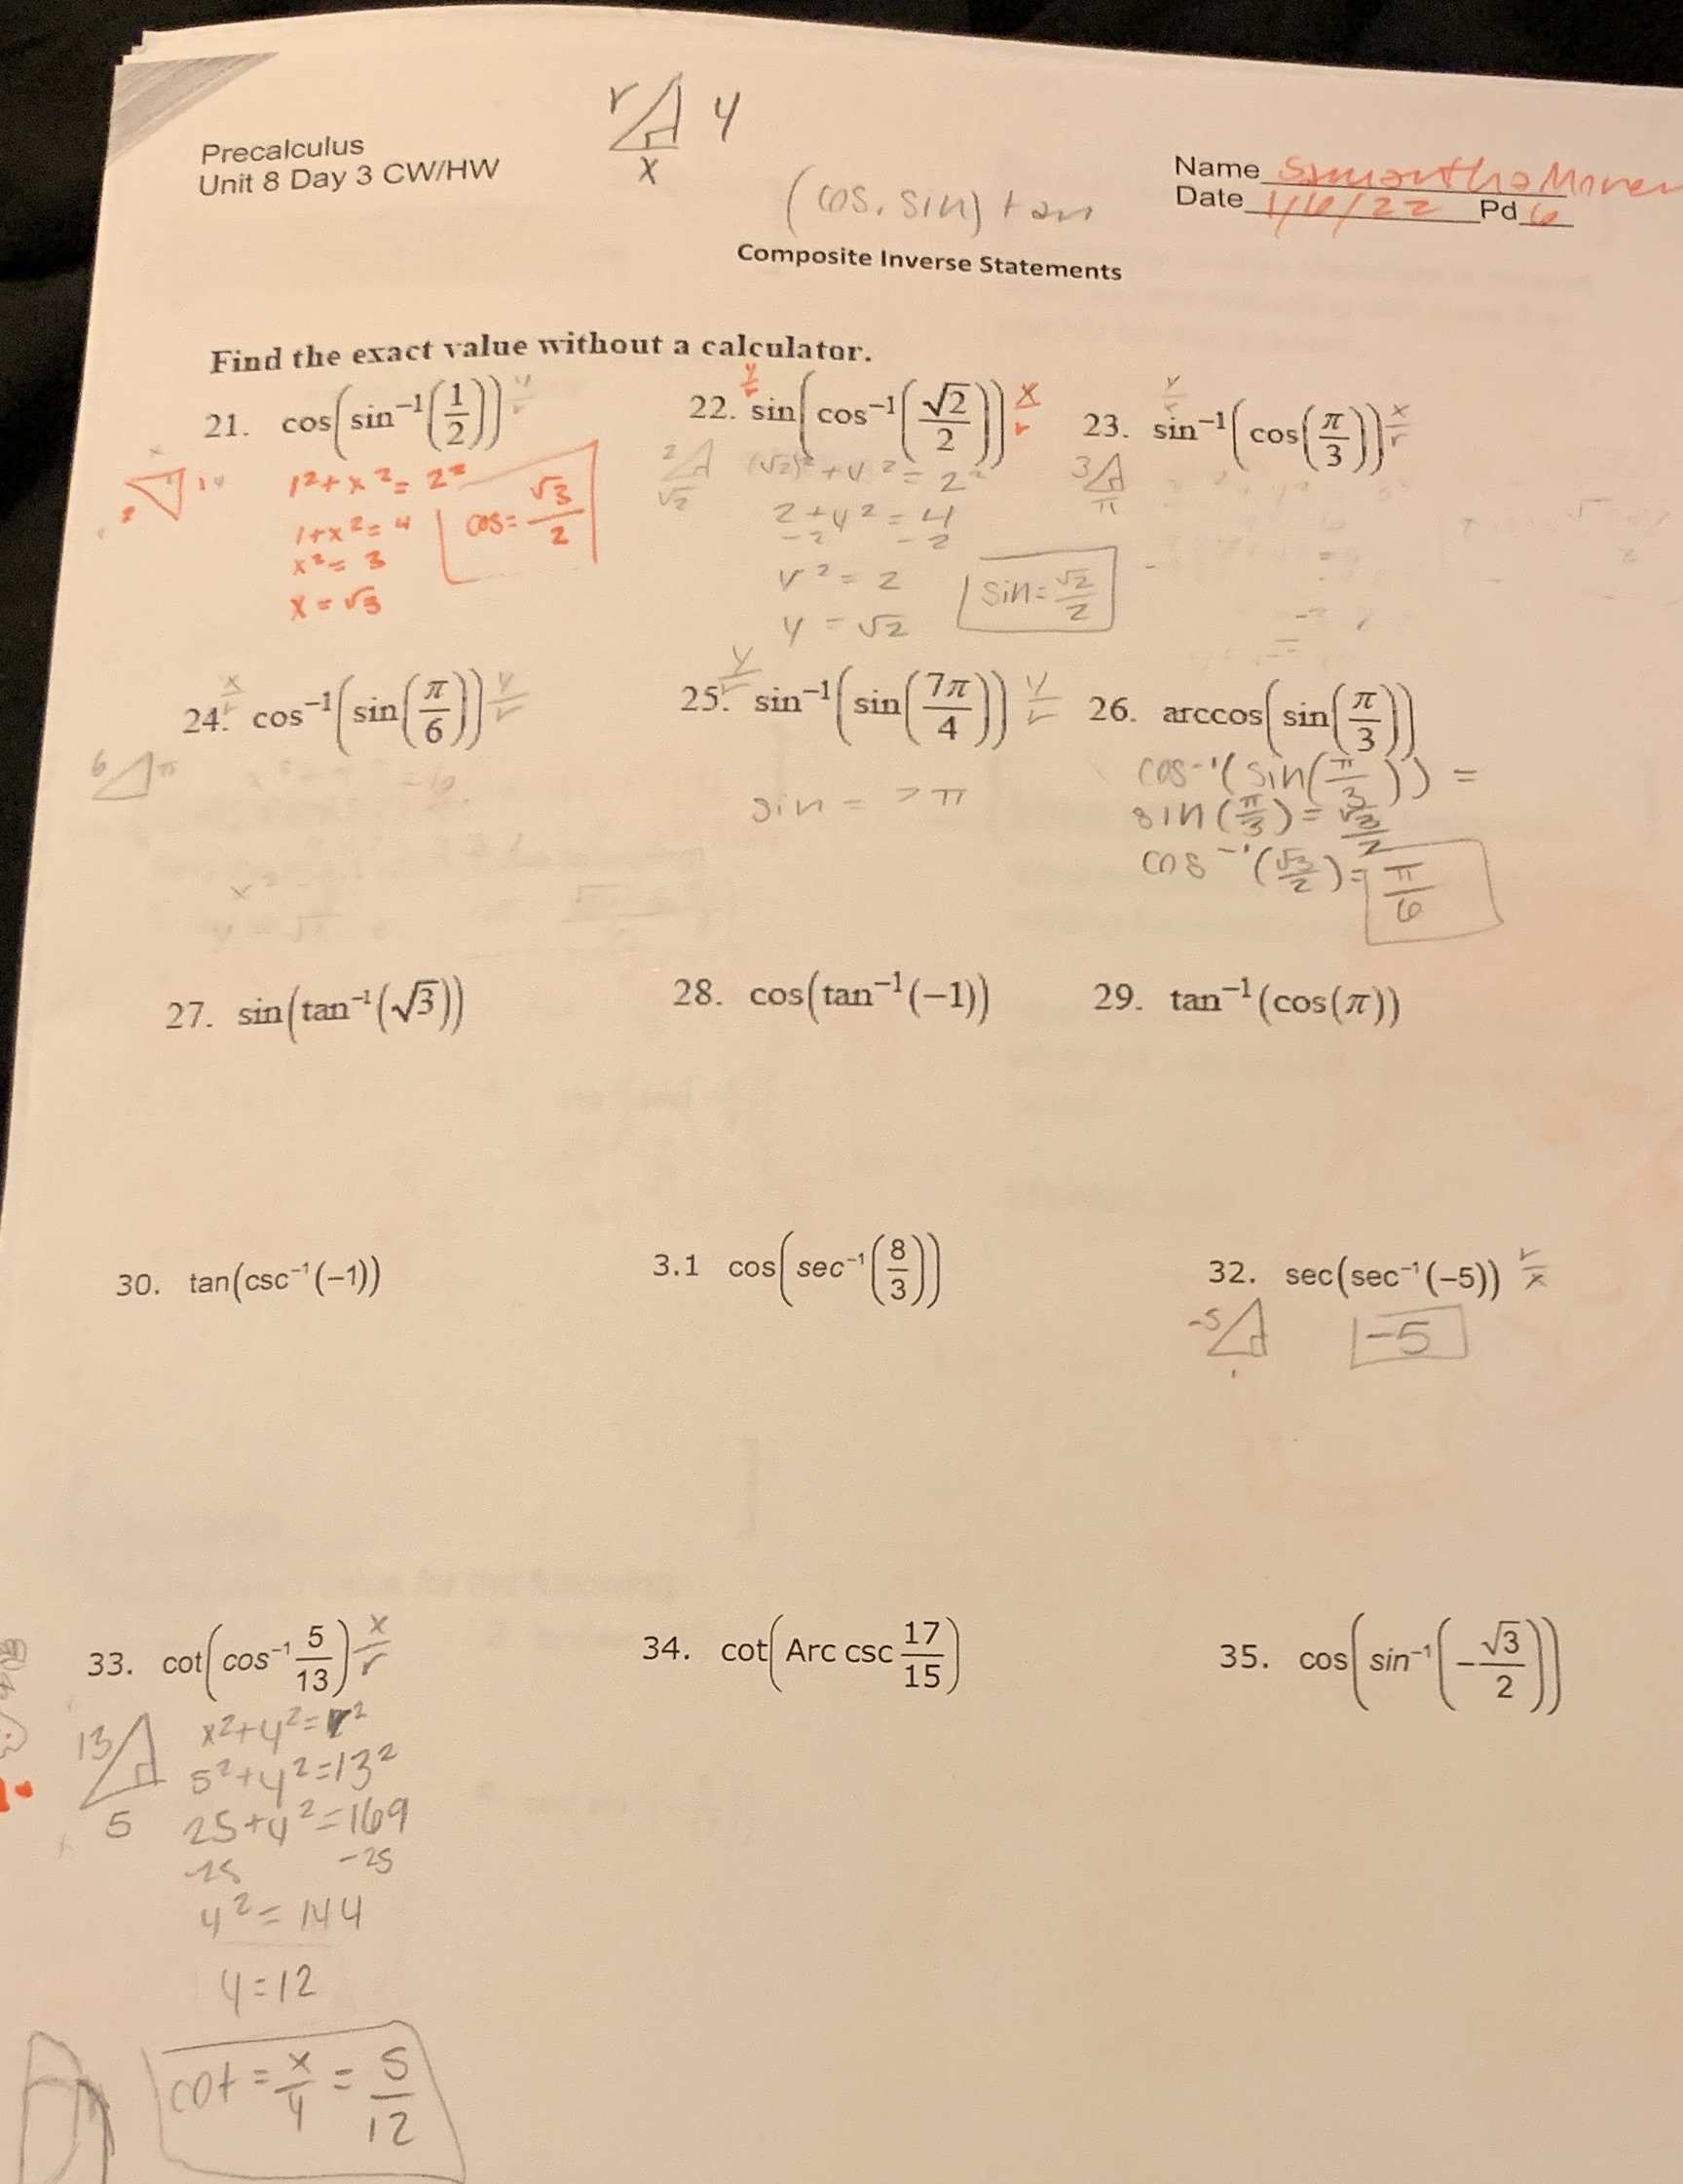 r y
x
Precalculus
Unit 8 Day 3 CW/HW
Name Samantha
Date 1/6/22 Pd 6
(cos, sin) tan
Composite Inverse Statements
Find the exact value without a calculator.
21. cos(sin⁻¹(1/2)) y/r
x
1 y
2
1² + x² = 2²
1 + x² = 4
x² = 3
x = √3
cos = √3/2
22. sin(cos⁻¹(√2/2)) x/r
y/r
2
√2
(√2)² + y² = 2²
2 + y² = 4
-2 -2
y² = 2
y = √2
sin = √2/2
23. sin⁻¹(cos(π/3)) x/r
y/r
3
π
24. cos⁻¹(sin(π/6)) y/r
x/r
6 π
25. sin⁻¹(sin(7π/4)) y/r
y/r
sin = 7π
26. arccos(sin(π/3))
cos⁻¹(sin(π/3)) =
sin(π/3) = √3/2
cos⁻¹(√3/2) = π/6
27. sin(tan⁻¹(√3))
28. cos(tan⁻¹(−1))
29. tan⁻¹(cos(π))
30. tan(csc⁻¹(−1))
3.1 cos(sec⁻¹(8/3))
32. sec(sec⁻¹(−5)) r/x
-5
-5
33. cot(cos⁻¹ 5/13) x/r
13
5
x² + y² = r²
5² + y² = 13²
25 + y² = 169
-25 -25
y² = 144
y = 12
cot = x/y = 5/12
34. cot(Arc csc 17/15)
35. cos(sin⁻¹(−√3/2))